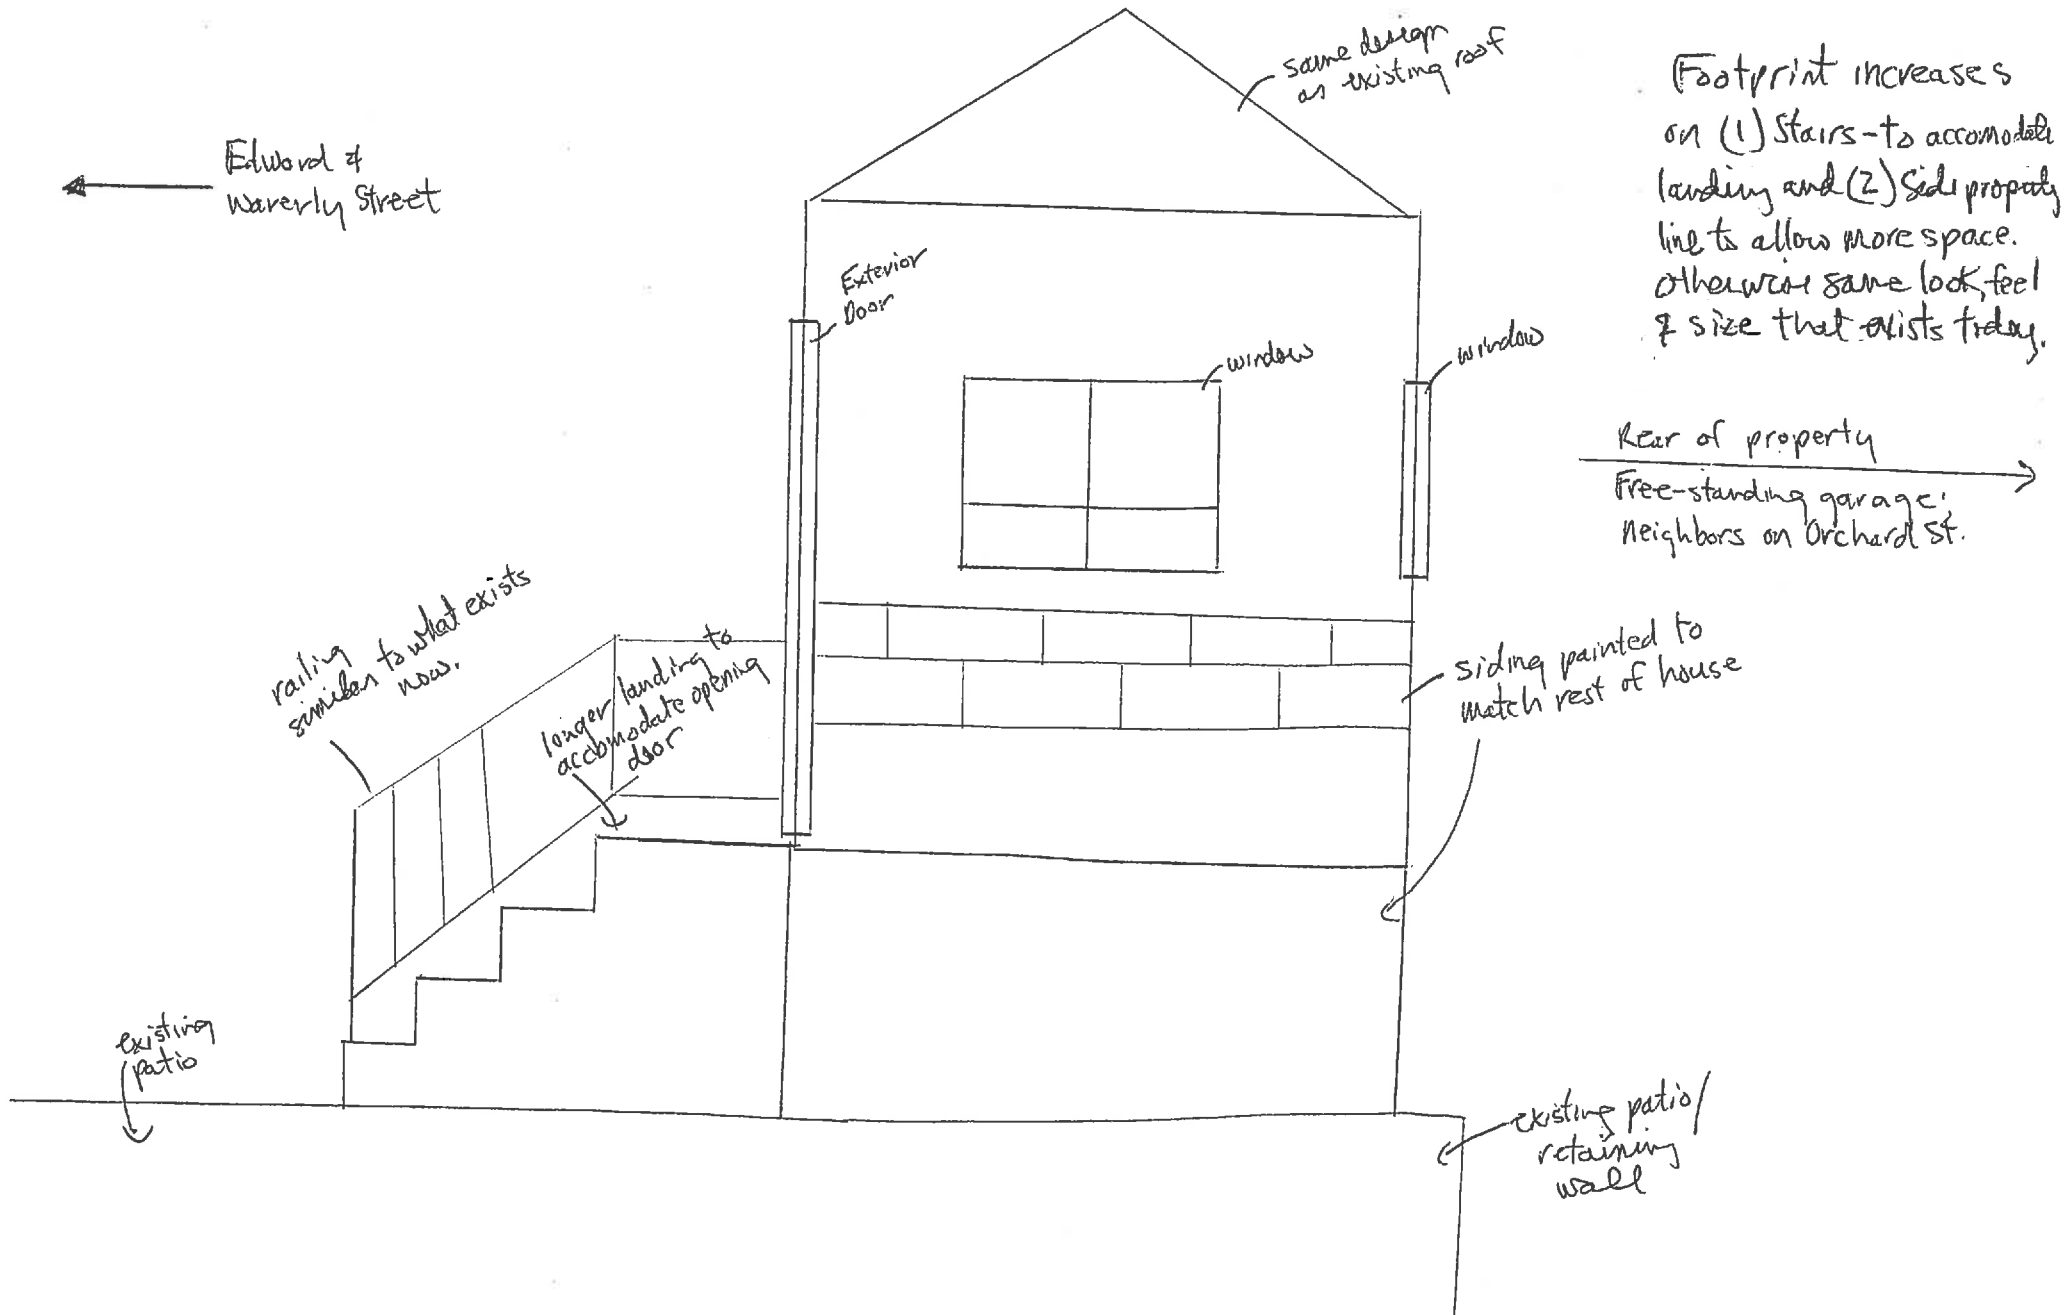 same design
as existing roof
Footprint increases
on (1) Stairs - to accomodate
landing and (2) Side property
line to allow more space.
otherwise same look, feel
& size that exists today.
Edward &
Waverly Street
Exterior
Door
window
window
Rear of property
Free-standing garage;
Neighbors on Orchard St.
railing
similar to what exists
now.
longer landing to
accomodate opening
door
siding painted to
match rest of house
existing
patio
existing patio/
retaining
wall